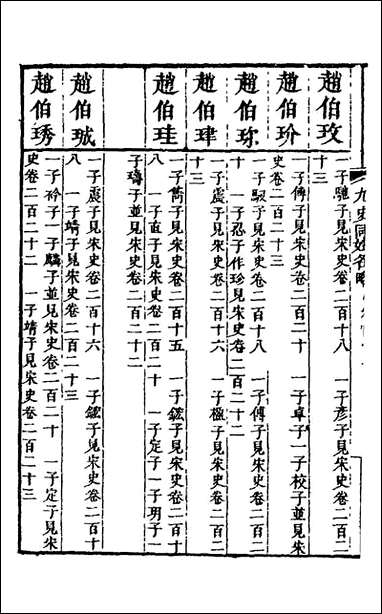 九史同姓名略
趙伯玫
一子馳子見宋史卷二百十八 一子彥子見宋史卷二百二
十三
趙伯玠
一子傳子見宋史卷二百二十 一子卓子一子校子並見宋
史卷二百二十三
趙伯珎
一子馭子見宋史卷二百十八 一子傅子見宋史卷二百二
十 一子忍子作珍見宋史卷二百二十二
趙伯珒
一子震子見宋史卷二百十六 一子極子見宋史卷二百二
十三
趙伯珪
一子雋子見宋史卷二百十五 一子鋐子見宋史卷二百十
八 一子直子見宋史卷二百二十 一子定子一子玥子一
子璹子並見宋史卷二百二十二
趙伯珷
一子震子見宋史卷二百十六 一子鋐子見宋史卷二百十
八 一子靖子見宋史卷二百二十三
趙伯琇
一子衿子一子驎子並見宋史卷二百二十 一子定子見宋
史卷二百二十二 一子靖子見宋史卷二百二十三